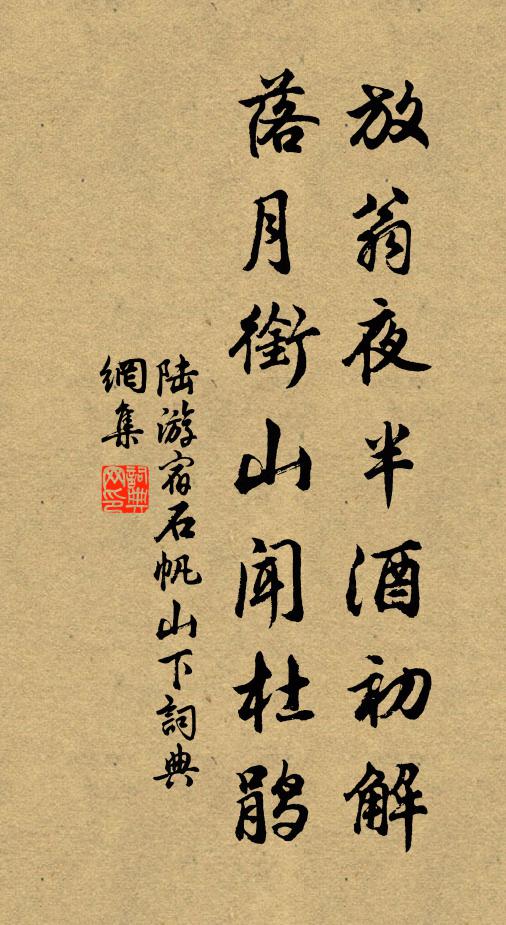 放翁夜半酒初解
落月銜山闻杜鹃
陆游宿石帆山下詞典
網集
詞典网印